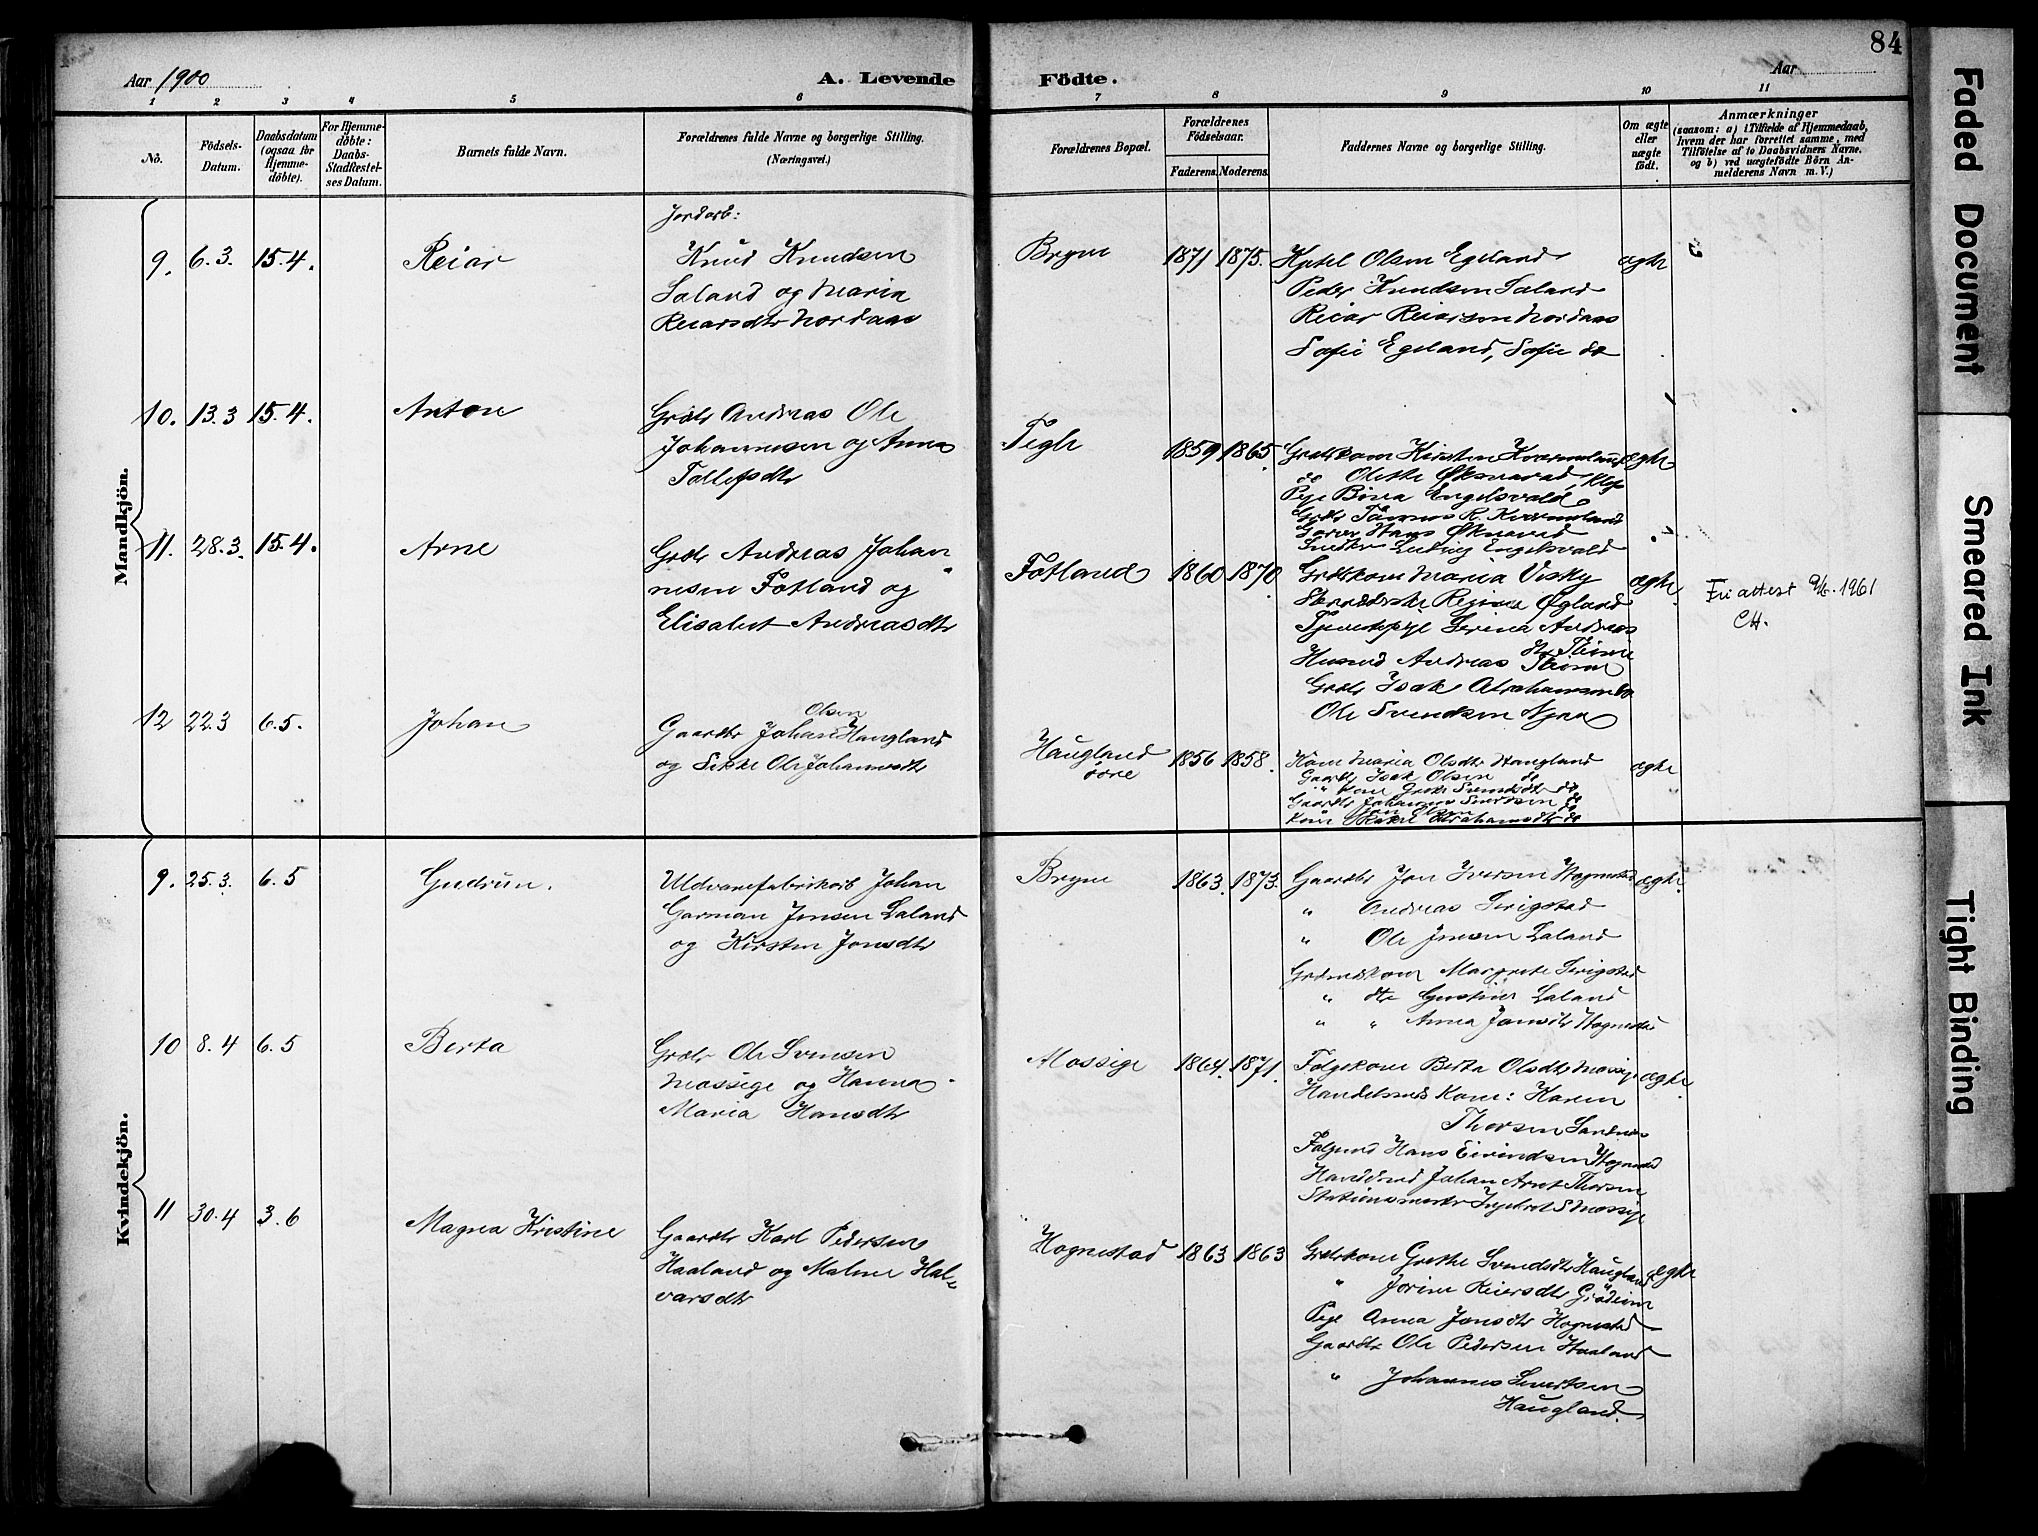 84
Aar 1900
A. Levende
Födte.
Aar
1 2 3 4 5 6 7 8 9 10 11
No.
Födsels-
Datum.
Daabsdatum
(ogsaa for
Hjemme-
döbte).
For Hjemme-
döbte:
Daabs-
Stadfæstel-
ses Datum.
Barnets fulde Navn.
Forældrenes fulde Navne og borgerlige Stilling.
(Næringsvei.)
Forældrenes Bopæl.
Forældrenes
Födselsaar.
Faderens. Moderens.
Faddernes Navne og borgerlige Stilling.
Om ægte
eller
uægte
födt.
Anmærkninger
(saasom: a) i Tilfælde af Hjemmedaab,
hvem der har forrettet samme, med
Tilföielse af to Daabsvidners Navne.
og b) ved uægtefödte Börn An-
melderens Navn m. V.)
Mandkjön.
9. 6.3. 15.4. Reiar
Jordarb:
Knud Knudsen
Laland og Maria
Reiarsdtr Nordaas
Bryne 1871 1875.
Kjetel Olsen Egeland
Peder Knudsen Laland
Reiar Reiarsen Nordaas
Sofie Egeland, Sofie do
ægte
10. 13.3 15.4. Anton
Grdbr Andreas Ole
Johannesen og Anna
Tollefsdtr
Tegle 1859 1865.
Grdbrkone Kirsten Kvernland
do Olette Øksnavad, Klep
Pige Engelsvold
Grdbr R. Kvernland
Hans Øksnavad
Ludvig Engelsvold
ægte
11. 28.3. 15.4. Arne
Grdbr Andreas Johan
nesen Fotland og
Elisabet Andreasdtr
Fotland 1860 1870.
Grdbrkone Maria Visky
Regine Øgland
Tjenestepige Serina Andreas
Thime
Husmd Andreas Thime
Grdbr Isak Abrahamsen do
Ole Svendsen Njaa
ægte.
Fri attest 9/6. 1961
CH.
12 22.3 6.5. Johan
Olsen
Gaardbr Johan Haugland
og Sikke Ole Johannsdtr
Haugland
övre 1856 1858.
Kone Maria Olsdtr Haugland
Gaardbr Isak Olsen do
" kone Grete Svendsdtr do
Gaardbr Johannes Sivertsen do
Olsen
Kone Rakel Abrahamsdtr do
ægte
Kvindekjön.
9. 25.3. 6.5 Gudrun.
Uldvarefabrikarb Johan
Garman Jensen Laland
og Kirsten Jonsdtr
Bryne 1863. 1873.
Gaardbr Jon Iversen Hognestad
" Andreas Serigstad
" Ole Jensen Laland
Grdmdskone Margrete Serigstad
" dtr Gustine Laland
" " Anna Jonsdtr Hognestad
ægte.
10 8.4 6.5 Berta
Grdbr Ole Svensen
Mossige og Hanna
Maria Hansdtr
Mossige 1864. 1871.
Folgekone Berta Olsdtr Mossige
Handelsmds Kone: Karen
Thorsen Sandnes
Folgemd Hans Eivindsen Hognestad
Johan Arnt Thorsen
Stationsmester Ingebret S Mossige
ægte.
11 30.4 3.6 Magna Kristine
Gaardbr Karl Pedersen
Haaland og Malene Hal-
varsdtr
Hognestad 1863 1863
Grdbrkone Grethe Svendsdtr Haugland
" Jorine Reiersdtr Grödeim
Pige Anna Jonsdtr Hognestad
Gaardbr Ole Pedersen Haaland
" Johannes Sivertsen
Haugland.
ægte
Faded Document
Smeared Ink
Tight Binding